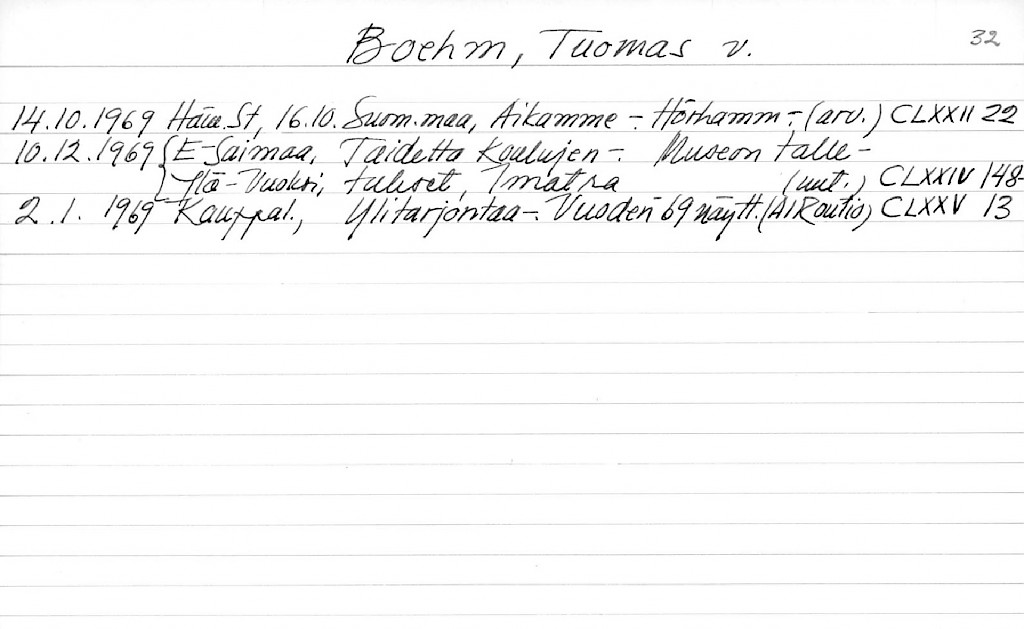 Boehm, Tuomas v. 32
14.10.1969 Häm.St, 16.10. Suom.maa, Aikamme -. Hörhamm -. (arv.) CLXXII 22
10.12.1969 { E-Saimaa, Taidetta Koulujen -. Museon talle-
Ylä-Vuoksi, tulset, Imatra (uut.) CLXXIV 148
2.1. 1969 Kauppal., Ylitarjontaa -. Vuoden 69 näytt. (AIRoutio) CLXXV 13